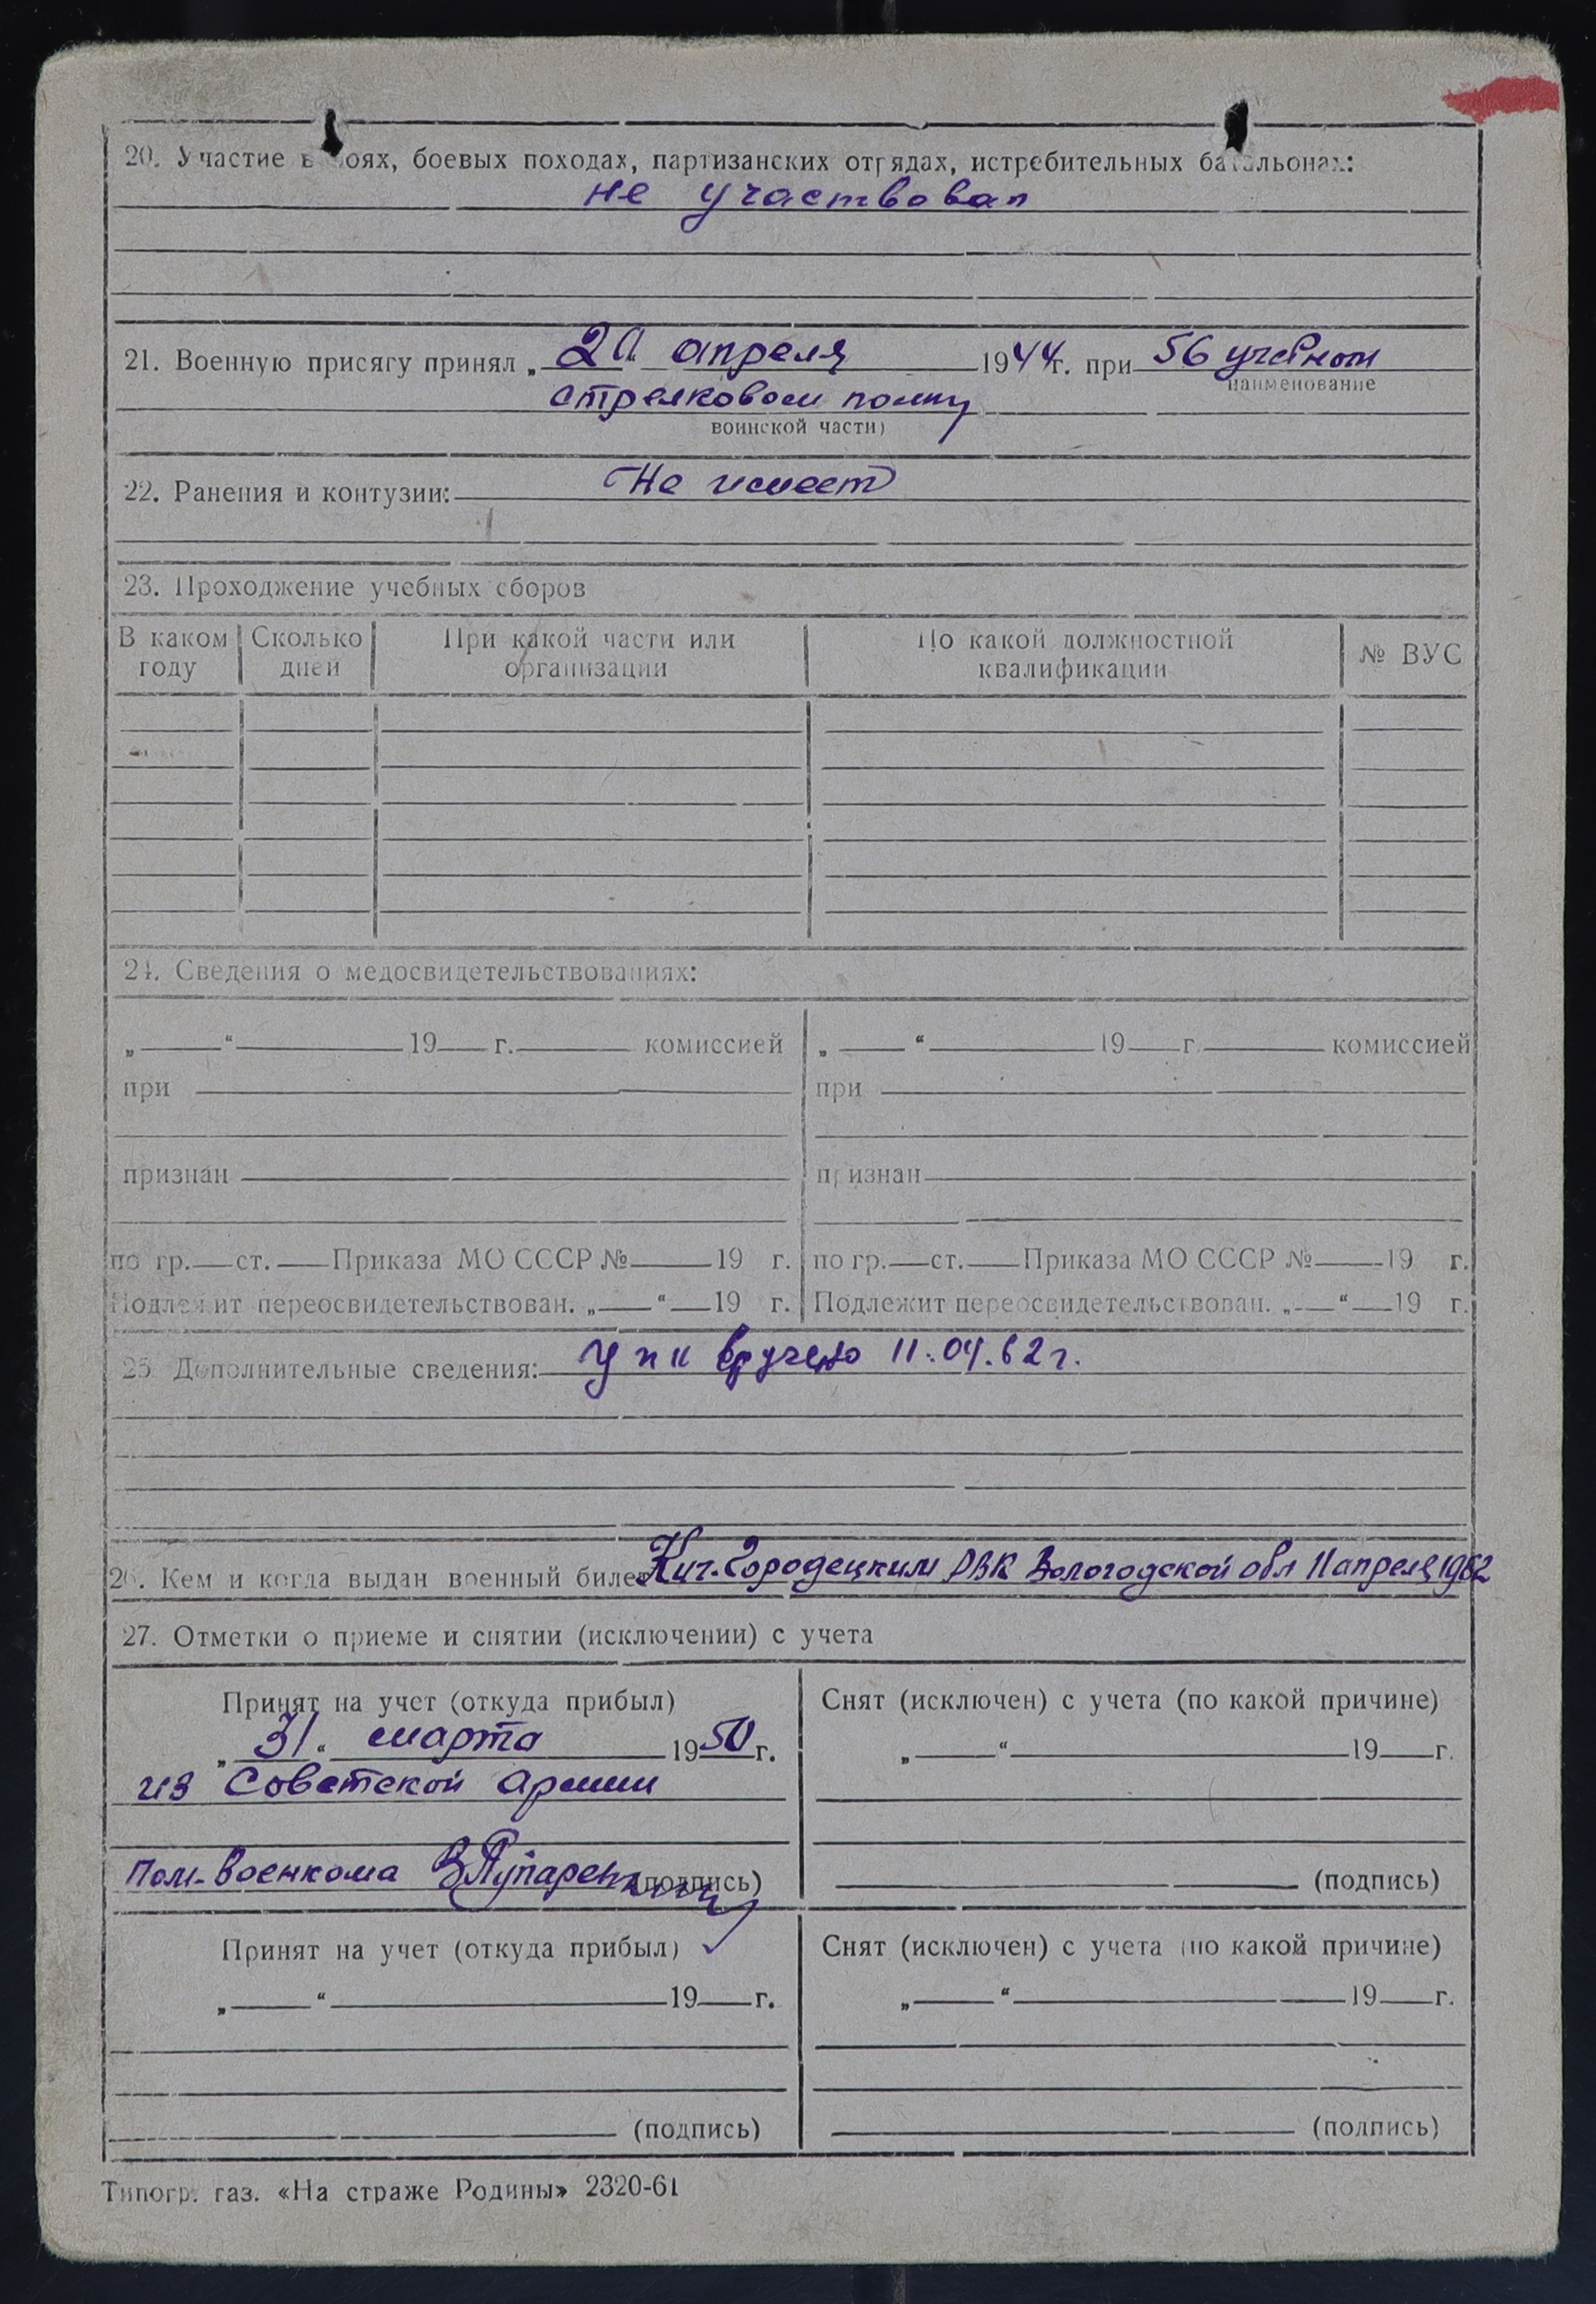 20. Участие в боях, боевых походах, партизанских отрядах, истребительных батальонах:
не участвовал
21. Военную присягу принял „20 апреля 1944г. при 56 учебном
наименование
стрелковом полку
воинской части)
22. Ранения и контузии: Не имеет
23. Прохождение учебных сборов
В каком году Сколько дней При какой части или организации По какой должностной квалификации № ВУС
24. Сведения о медосвидетельствованиях:
„ “ 19 г. комиссией „ “ 19 г. комиссией
при при
признан признан
по гр. ст. Приказа МО СССР № 19 г. по гр. ст. Приказа МО СССР № 19 г.
Подлежит переосвидетельствован. „ “ 19 г. Подлежит переосвидетельствован. „ “ 19 г.
25. Дополнительные сведения: вручено 11.04.62г.
26. Кем и когда выдан военный билет Кич.Городецким РВК Вологодской обл 11 апреля 1962
27. Отметки о приеме и снятии (исключении) с учета
Принят на учет (откуда прибыл) Снят (исключен) с учета (по какой причине)
„31“ марта 1950г. „ “ 19 г.
из Советской Армии
Пом. Военкома (подпись) (подпись)
Принят на учет (откуда прибыл) Снят (исключен) с учета (по какой причине)
„ “ 19 г. „ “ 19 г.
(подпись) (подпись)
Типогр. газ. «На страже Родины» 2320-61